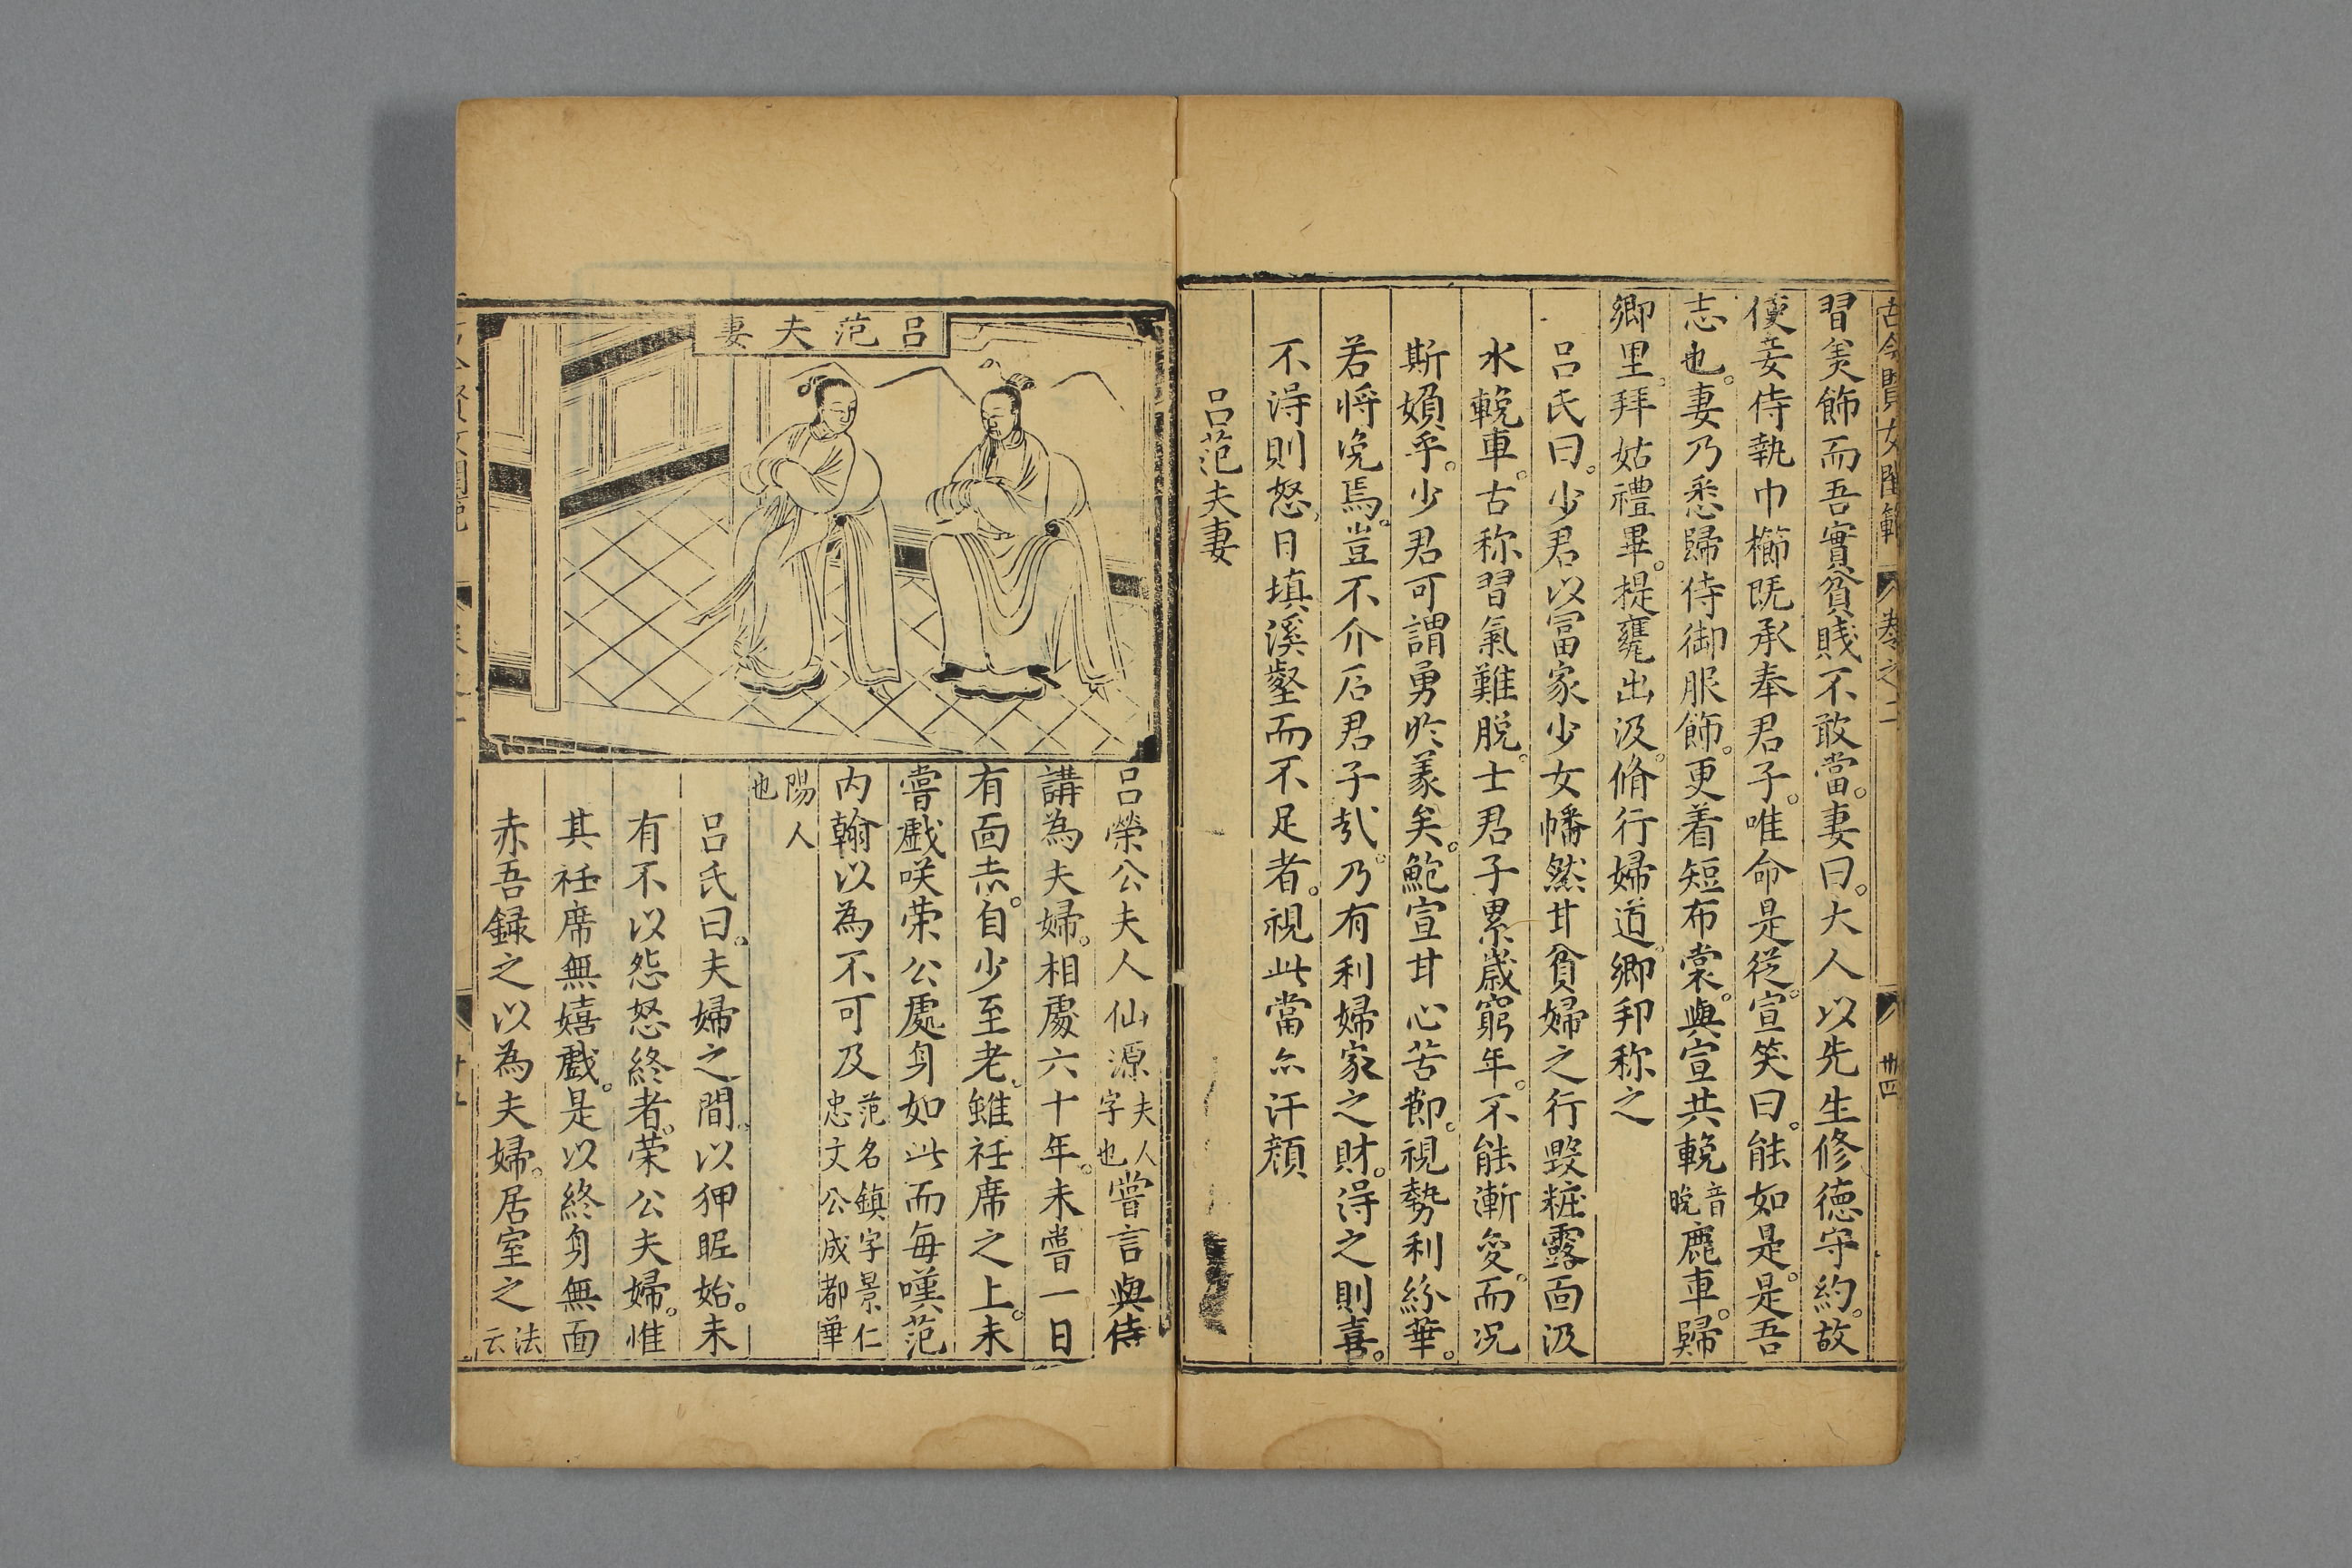 古今賢女閨範 卷之二 卅四
習美飾而吾實貧賤不敢當。妻曰。大人以先生修德守約。故
使妾侍執巾櫛既承奉君子。唯命是從。宣笑曰。能如是。是吾
志也。妻乃悉歸侍御服飾。更着短布裳。與宣共輓音晚鹿車。歸
鄉里。拜姑禮畢。提甕出汲。脩行婦道。鄉邦称之
呂氏曰。少君以冨家少女幡然甘貧婦之行毀粧露面汲
水輓車。古称習氣難脫。士君子累歲窮年。不能漸变。而况
斯嬪乎。少君可謂勇於義矣。鮑宣甘心苦節。視勢利紛華。
若將浼焉。豈不介石君子哉。乃有利婦家之財。得之則喜。
不得則怒。日填溪壑而不足者。視此當亦汗顏
呂范夫妻
呂范夫妻
呂榮公夫人仙源夫人字也嘗言與侍
講為夫婦。相處六十年。未嘗一日
有面赤。自少至老。雖衽席之上。未
嘗戲咲荣公處身如此而每嘆范
内翰以為不可及范名鎮字景仁忠文公成都華
陽人也
呂氏曰。夫婦之間。以狎昵始。未
有不以怨怒終者。荣公夫婦。惟
其衽席無嬉戲。是以終身無面
赤吾録之以為夫婦。居室之法云